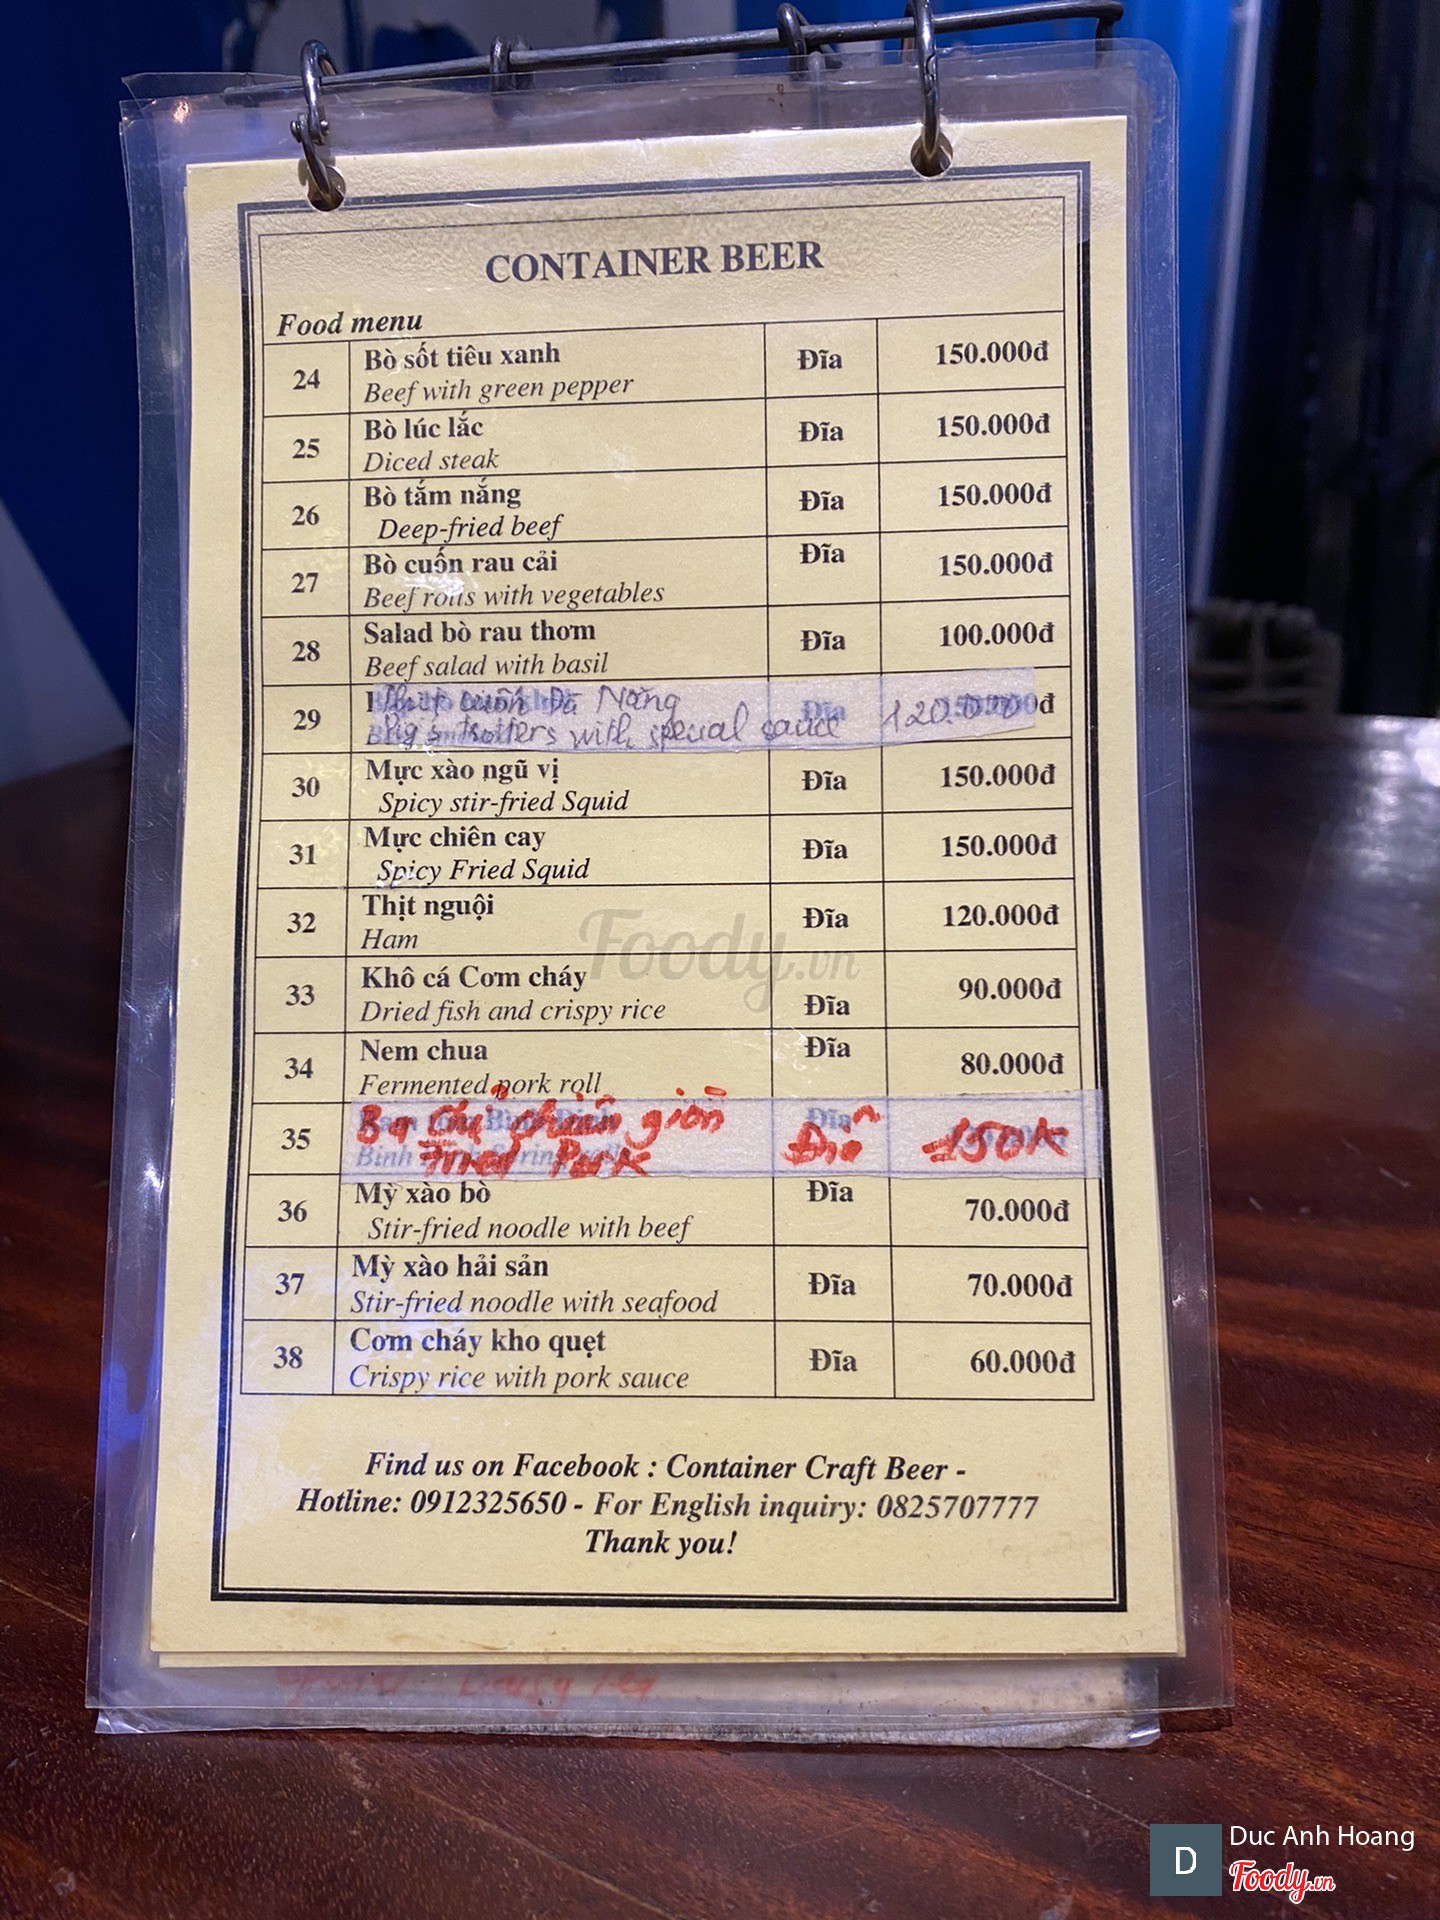 CONTAINER BEER
Food menu
24 Bò sốt tiêu xanh Đĩa 150.000đ
Beef with green pepper
25 Bò lúc lắc Đĩa 150.000đ
Diced steak
26 Bò tắm nắng Đĩa 150.000đ
Deep-fried beef
27 Bò cuốn rau cải Đĩa 150.000đ
Beef rolls with vegetables
28 Salad bò rau thơm Đĩa 100.000đ
Beef salad with basil
29 Đà Nẵng 120.000
with special sauce
30 Mực xào ngũ vị Đĩa 150.000đ
Spicy stir-fried Squid
31 Mực chiên cay Đĩa 150.000đ
Spicy Fried Squid
32 Thịt nguội Đĩa 120.000đ
Ham
33 Khô cá Cơm cháy Đĩa 90.000đ
Dried fish and crispy rice
34 Nem chua Đĩa 80.000đ
Fermented pork roll
35 Ba chỉ chiên giòn Đĩa 150K
Fried Pork
36 Mỳ xào bò Đĩa 70.000đ
Stir-fried noodle with beef
37 Mỳ xào hải sản Đĩa 70.000đ
Stir-fried noodle with seafood
38 Cơm cháy kho quẹt Đĩa 60.000đ
Crispy rice with pork sauce
Find us on Facebook : Container Craft Beer -
Hotline: 0912325650 - For English inquiry: 0825707777
Thank you!
Foody.vn
D Duc Anh Hoang
Foody.vn